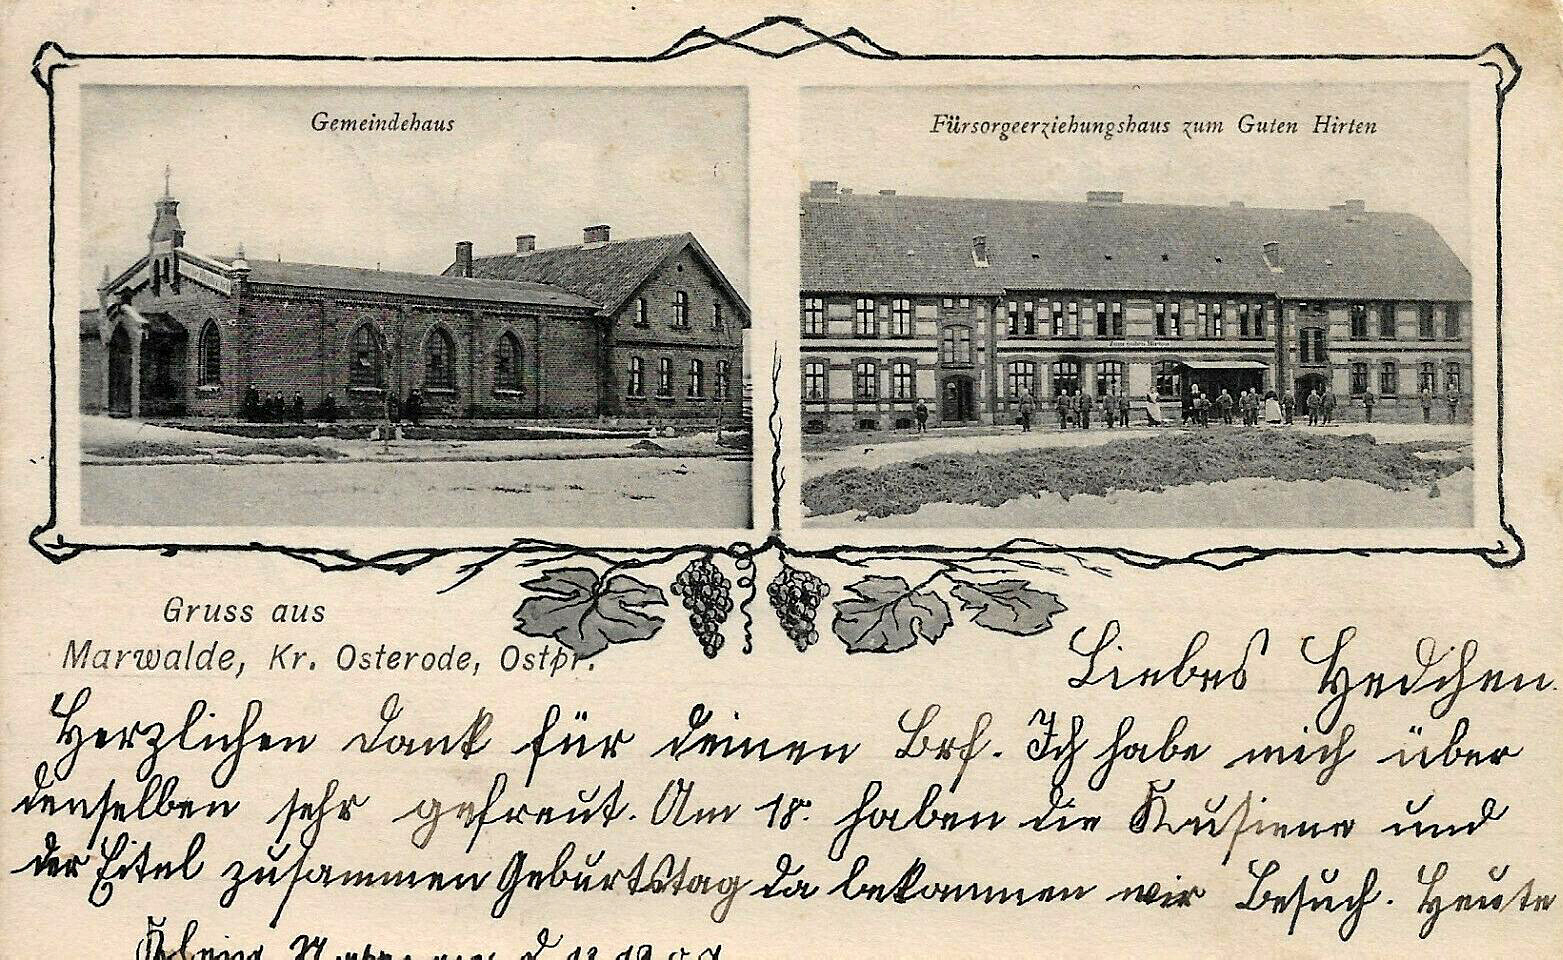 Gemeindehaus
Fürsorgeerziehungshaus zum Guten Hirten
Gruss aus
Marwalde, Kr. Osterode, Ostpr.
Liebes Hedchen.
Herzlichen Dank für deinen Brf. Ich habe mich über
denselben sehr gefreut. Am 18. haben die und
der Eitel zusammen Geburtstag da bekommen wir Besuch. Heute
Klein